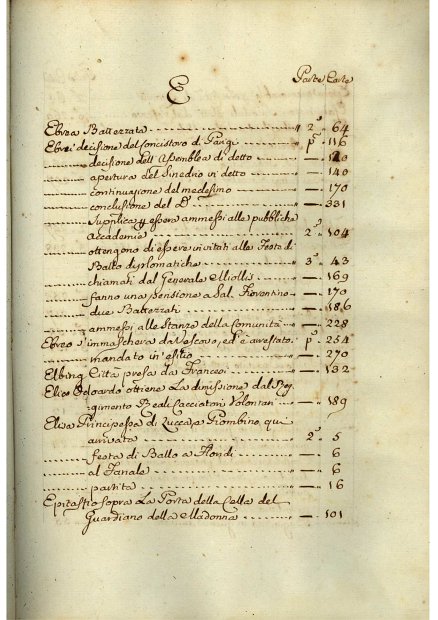 Parte Carte
E
Ebrea Battezzata " 2ª 64
Ebrei decisione del concistoro di Parigi " pª 116
decisione dell'Assemblea di detto — 120
apertura del Sinedrio di detto — 140
continuazione del medesimo — 170
conclusione del Dº — 331
supplica p essere ammessi alle pubbliche
Accademie 2ª 104
ottengono di essere invitati alla Festa di
Ballo diplomatiche " 3ª 43
chiamati dal Generale Miollis — 169
fanno una pensione a Sal. Fiorentino — 170
due Battezzati — 186
ammessi alle Stanze della Comunità — 228
Ebreo s'immaschera da Vescovo, ed è arrestato. pª 254
mandato in esilio — 270
Elbing Città presa da Francesi — 132
Odoardo ottiene La dimissione dal Reg-
gimento Reali Cacciatori Volontari — 189
Elisa Principessa di Lucca, e Piombino, qui
arrivata 2ª 5
festa di Ballo a — 6
al — 6
partita " — 16
Epitaffio sopra La Porta della Cella del
Guardiano della Madonna — 101